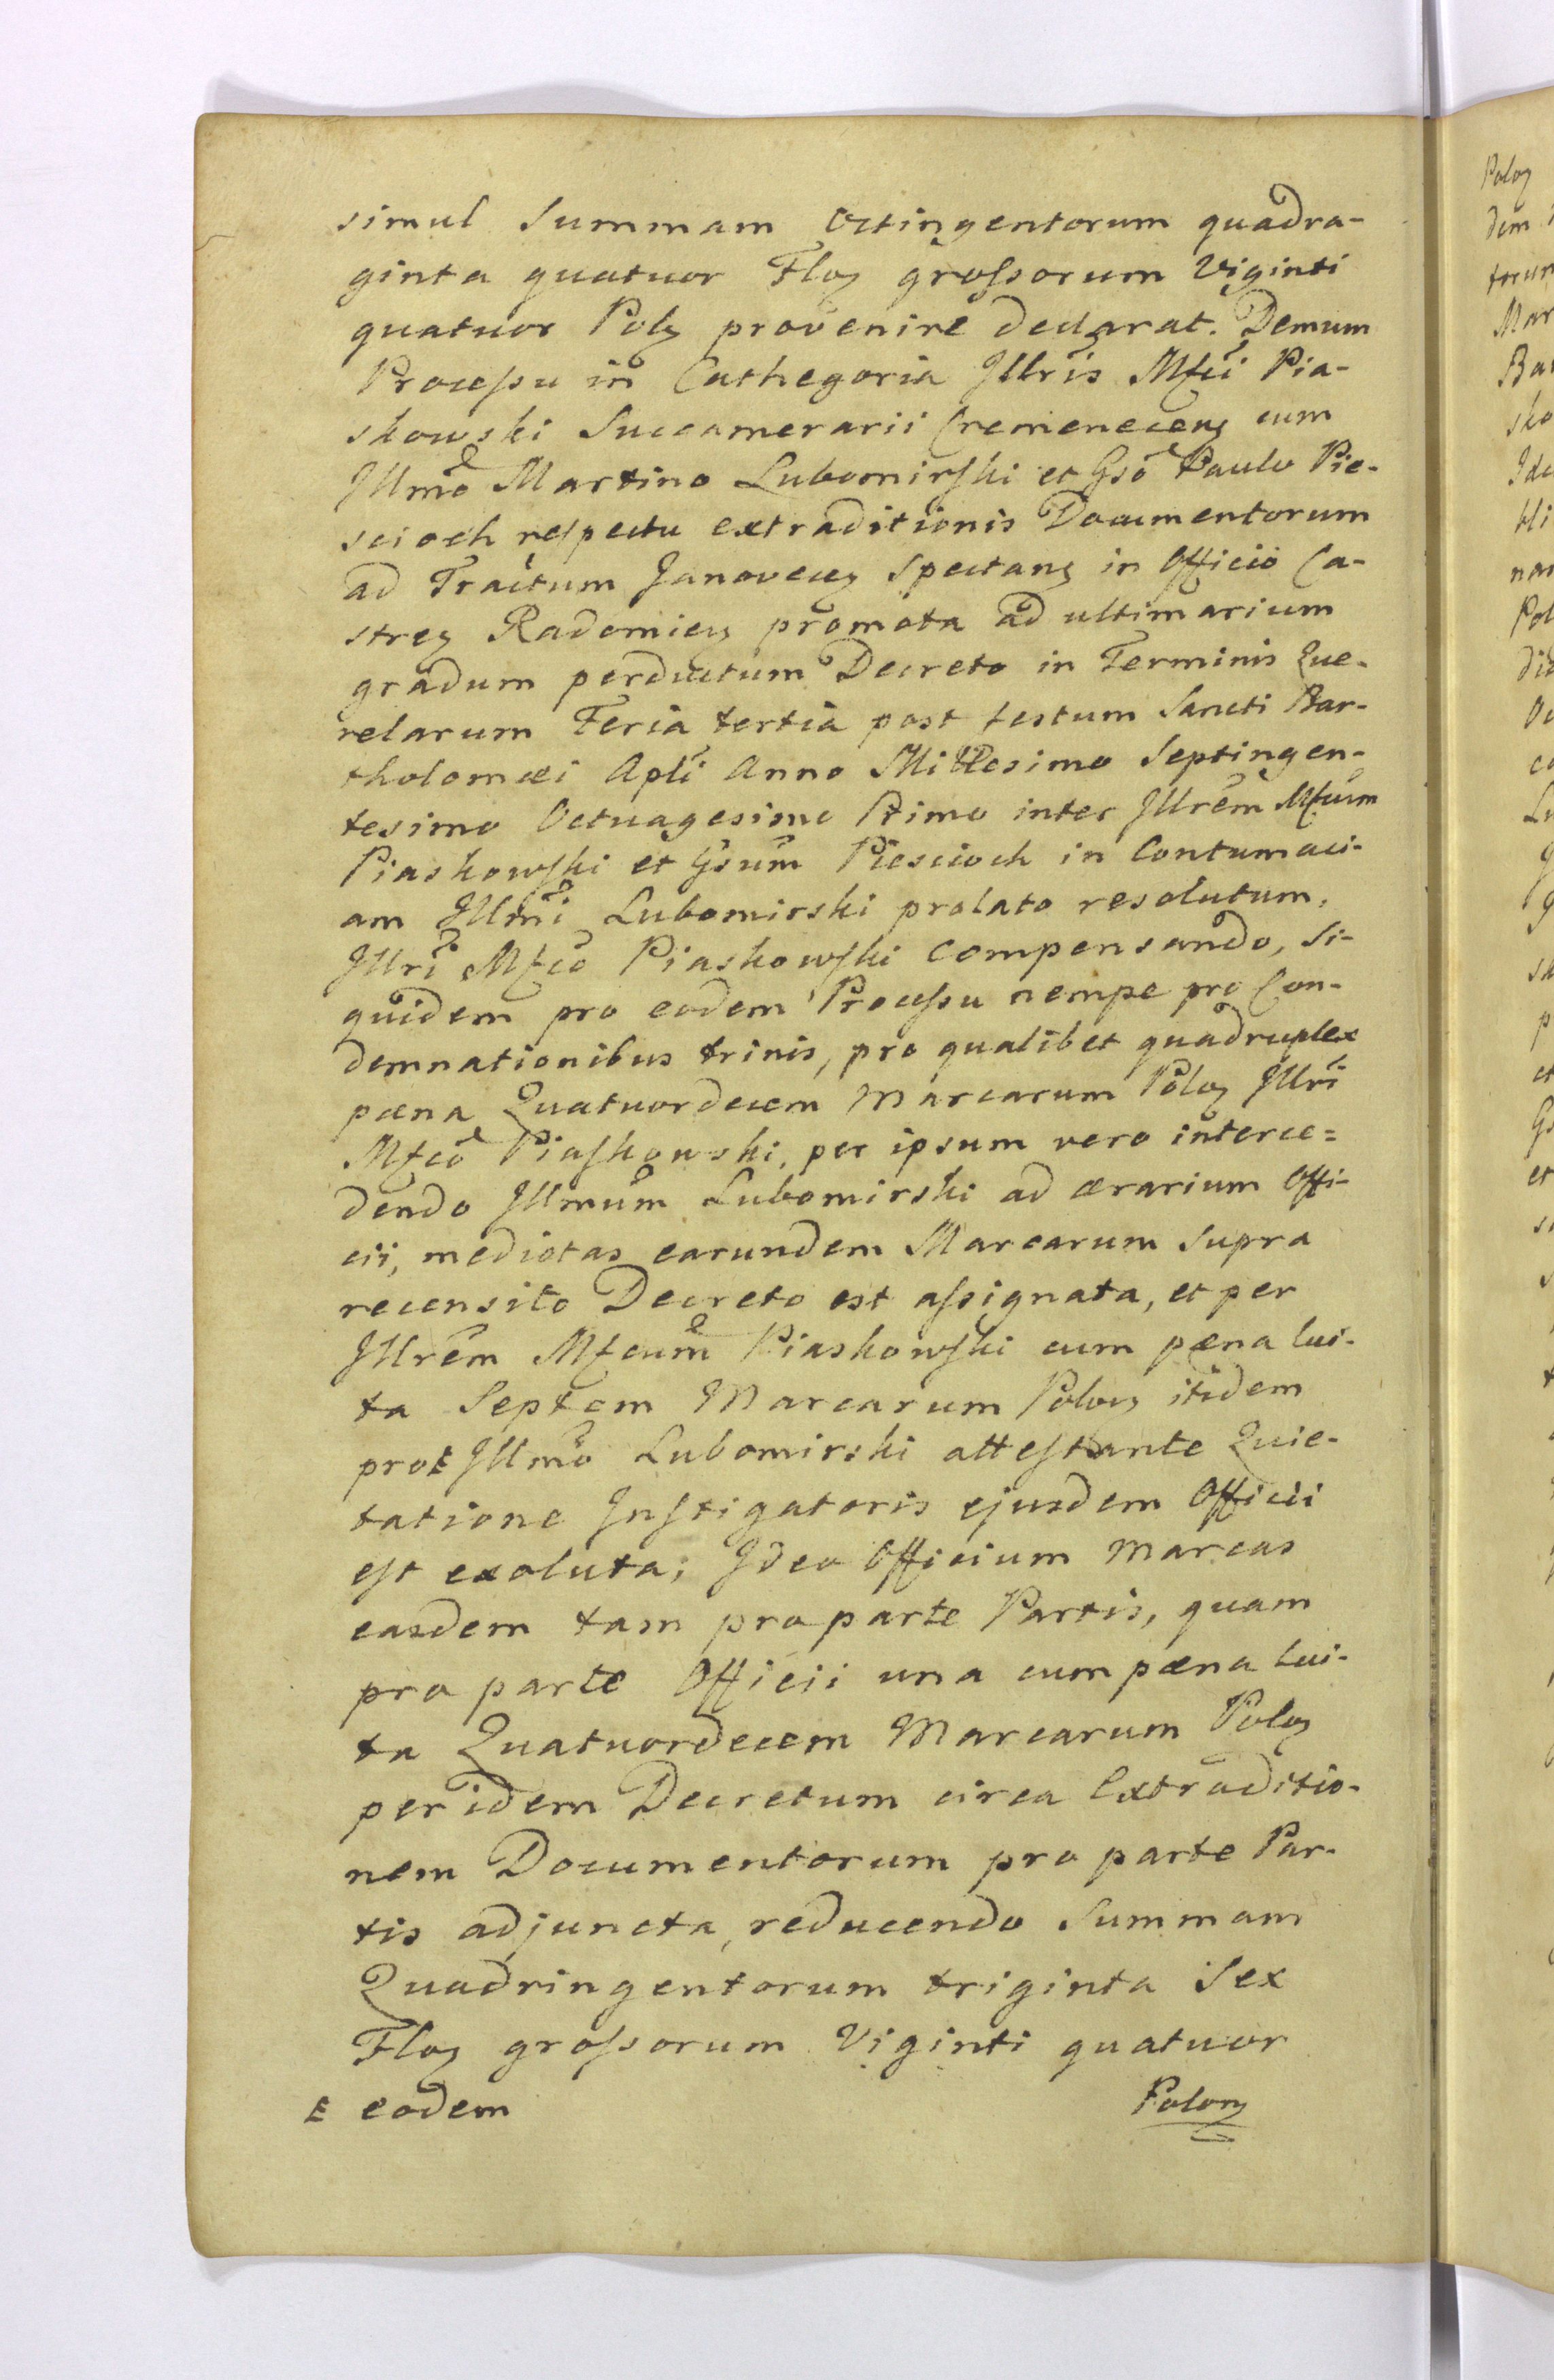 simul Summam Octingentorum quadra-
ginta quatuor Floꝫ grossorum Viginti
quatuor Polꝫ provenire declarat. Demum
Processu in Cathegoria Illris Mfci Pia-
skowski Succamerarii Cremenecenꝫ cum
Illmo Martino Lubomirski et Gso Paulo Pie-
scioch respectu extraditionis Documentorum
ad Tractum Janovecenꝫ Spectanꝫ in Officio Ca-
strenꝫ Radomienꝫ promota ad ultimarium
gradum perductum Decreto in Terminis Que-
relarum Feria tertia post festum Sancti Bar-
tholomæi Apli Anno Millesimo Septingen-
tesimo Octuagesimo Primo inter Illrem Mfcum
Piaskowski et Gsum Piescioch in Contumaci-
am Illmi Lubomirski prolato resolutum,
Illri Mfco Piaskowski compensando, Si-
quidem pro eodem Processu nempe pro Con-
demnationibus trinis, pro qualibet quadruplex
pæna Quatuordecem Marcarum Poloꝫ Illri
Mfco Piaskowski, per ipsum vero interce=
dendo Illmum Lubomirski ad ærarium Offi-
cii, medietas earundem Marcarum Supra
recensito Decreto est assignata, et per
Illrem Mfcum Piaskowski cum pæna lui-
ta Septem Marcarum Polonꝫ itidem
pro Illmo Lubomirski attestante Quie-
tatione Instigatoris ejusdem Officii
est exoluta; Ideo Officium Marcas
easdem tam pro parte Partis, quam
pro parte Officii una cum pæna lui-
ta Quatuordecem Marcarum Poloꝫ
per idem Decretum circa Extraditio-
nem Documentorum pro parte Par-
tis adjuncta, reducendo Summam
Quadringentorum triginta Sex
Floꝫ grossorum Viginti quatuor
eodem Polonꝫ